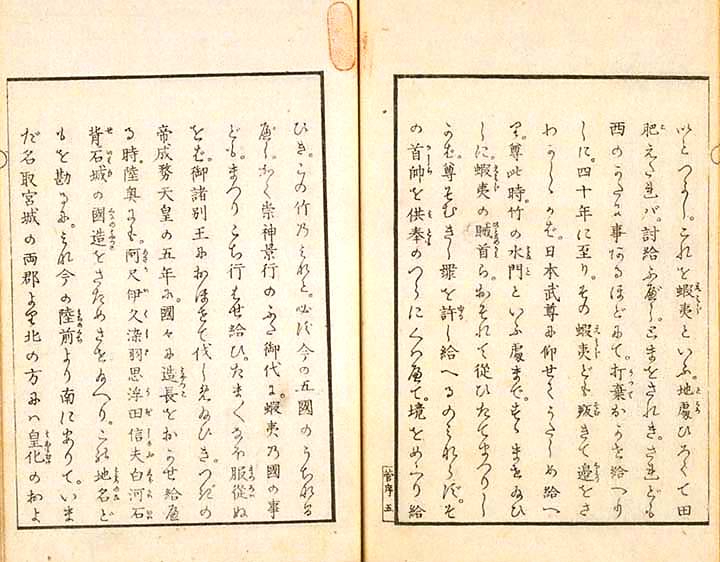 いとつよし。これを蝦夷といふ。地廣ひろくて田
肥えたれバ。討給ふべし。とまをされき。されども
西のかたに事あるほどにて。打棄おかせ給へり
しに。四十年に至り。その蝦夷ども叛きて邊をさ
わがしかば。日本武尊に仰せてうたしめ給へ
り。尊此時。竹の水門といふ處まで。いでまし給ひ
しに。蝦夷の賊首ら。おそれて從ひたてまつりし
かば。尊そむきし罪を許し給へるのみならず。そ
の首帥を供奉のつらにくハへて。境をめぐり給
ひき。この竹乃みなと。必ず今の五國のうちなる
べし。かく崇神景行のふた御代に。蝦夷乃國の事
ども。まつりごち行はせ給ひ。たまくなほ服從ぬ
をば。御諸別王におほせて伐しめ給ひき。つぎの
帝成務天皇の五年に。國々に造長をおかせ給へ
る時。陸奥にも。阿尺伊久染羽思浮田信夫白河石
背石城の國造をさためさせ給へり。これ地名ど
もを勘るに。みな今の陸前より南にありて。いま
だ名取宮城の両郡より北の方にハ皇化のおよ
菅序 五